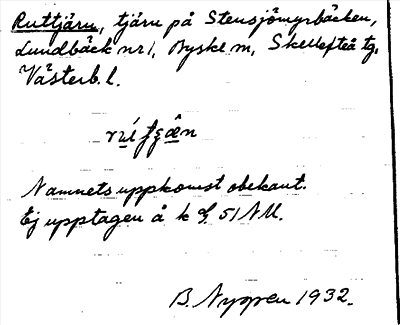 Ruttjärn, tjärn på Stensjömyrbäcken,
Lundbäck nr 1, Byske sn, Skellefteå tg,
Västerb. l.
Namnets uppkomst obekant.
Ej upptagen å k bl. 51 NV.
B. Nyppen 1932.